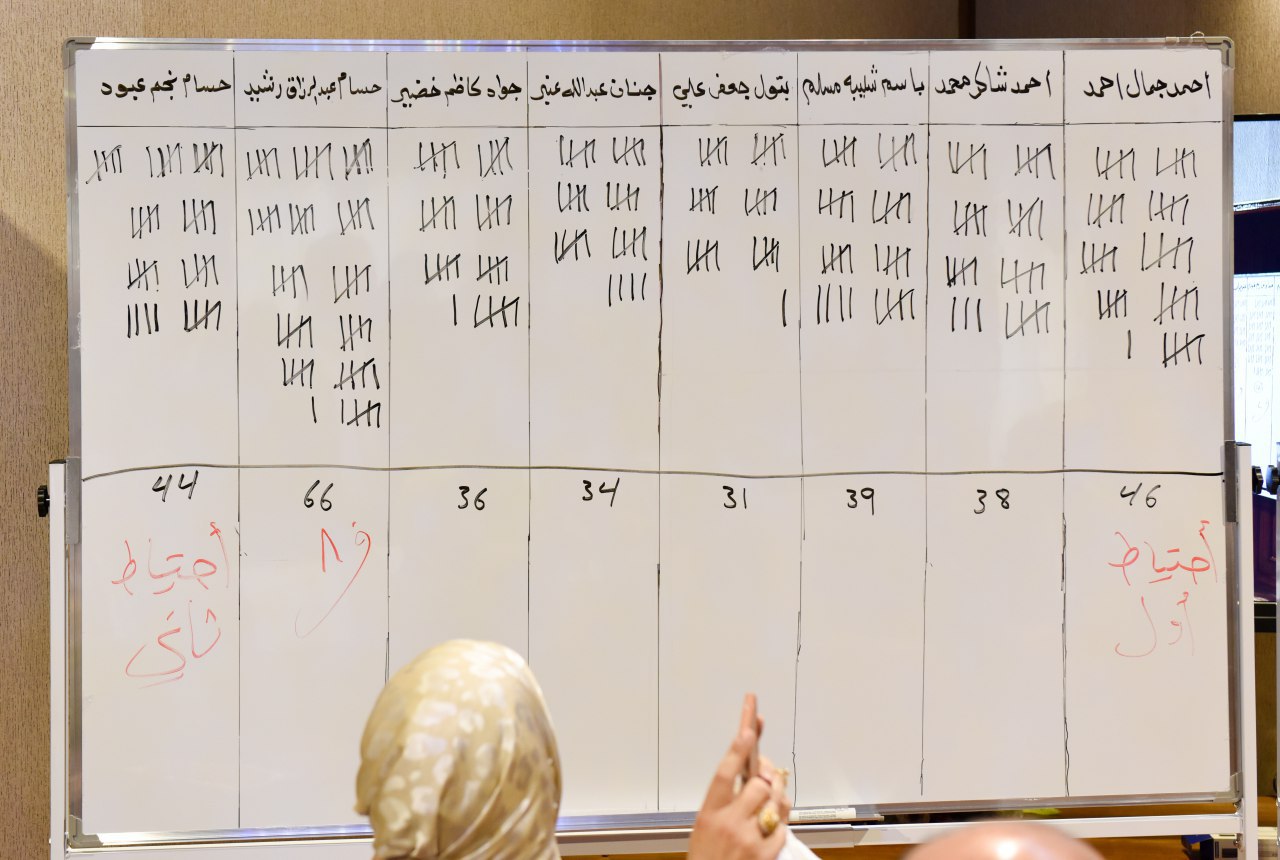 احمد جمال احمد
احمد شاكر محمد
باسم شليبه مسلم
بتول جعفر علي
جنان عبدالله عنبر
جواد كاظم خضير
حسام عبدالرزاق رشيد
حسام نجم عبود
46
38
39
31
34
36
66
44
أحتياط
أول
أحتياط
ثاني